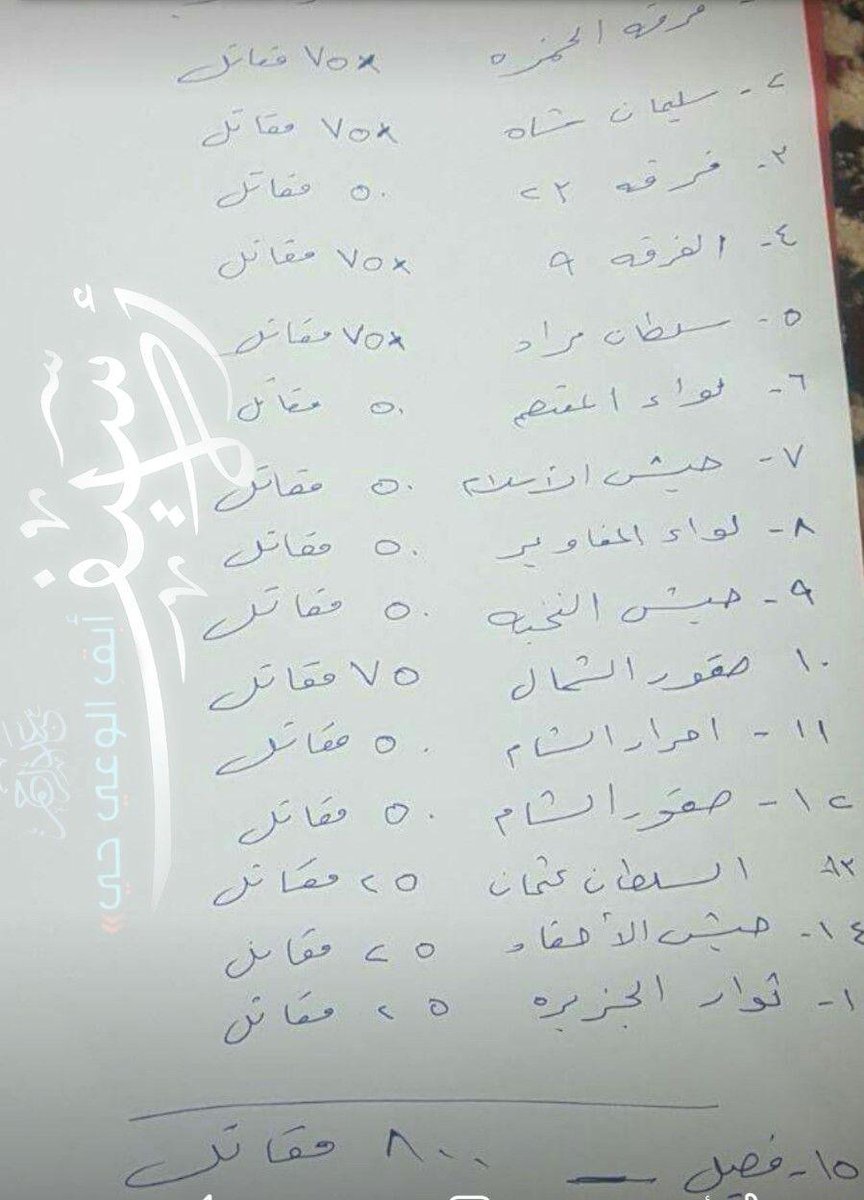 فرقه الحمزه ٧٥× مقاتل
٢- سليمان شاه ٧٥× مقاتل
٣- فرقه ٢٣ ٥٠ مقاتل
٤- الفرقه ٩ ٧٥× مقاتل
٥- سلطان مراد ٧٥× مقاتل
٦- لواء المعتصم ٥٠ مقاتل
٧- جيش الاسلام ٥٠ مقاتل
٨- لواء المغاوير ٥٠ مقاتل
٩- جيش النخبه ٥٠ مقاتل
١٠ صقور الشمال ٧٥ مقاتل
١١- احرار الشام ٥٠ مقاتل
١٢- صقور الشام ٥٠ مقاتل
١٣ السلطان عثمان ٢٥ مقاتل
١٤- جيش الأحفاد ٢٥ مقاتل
١- ثوار الجزيره ٢٥ مقاتل
١٥- فصيل — ٨٠٠ مقاتل
أبقِ الوعي حي»